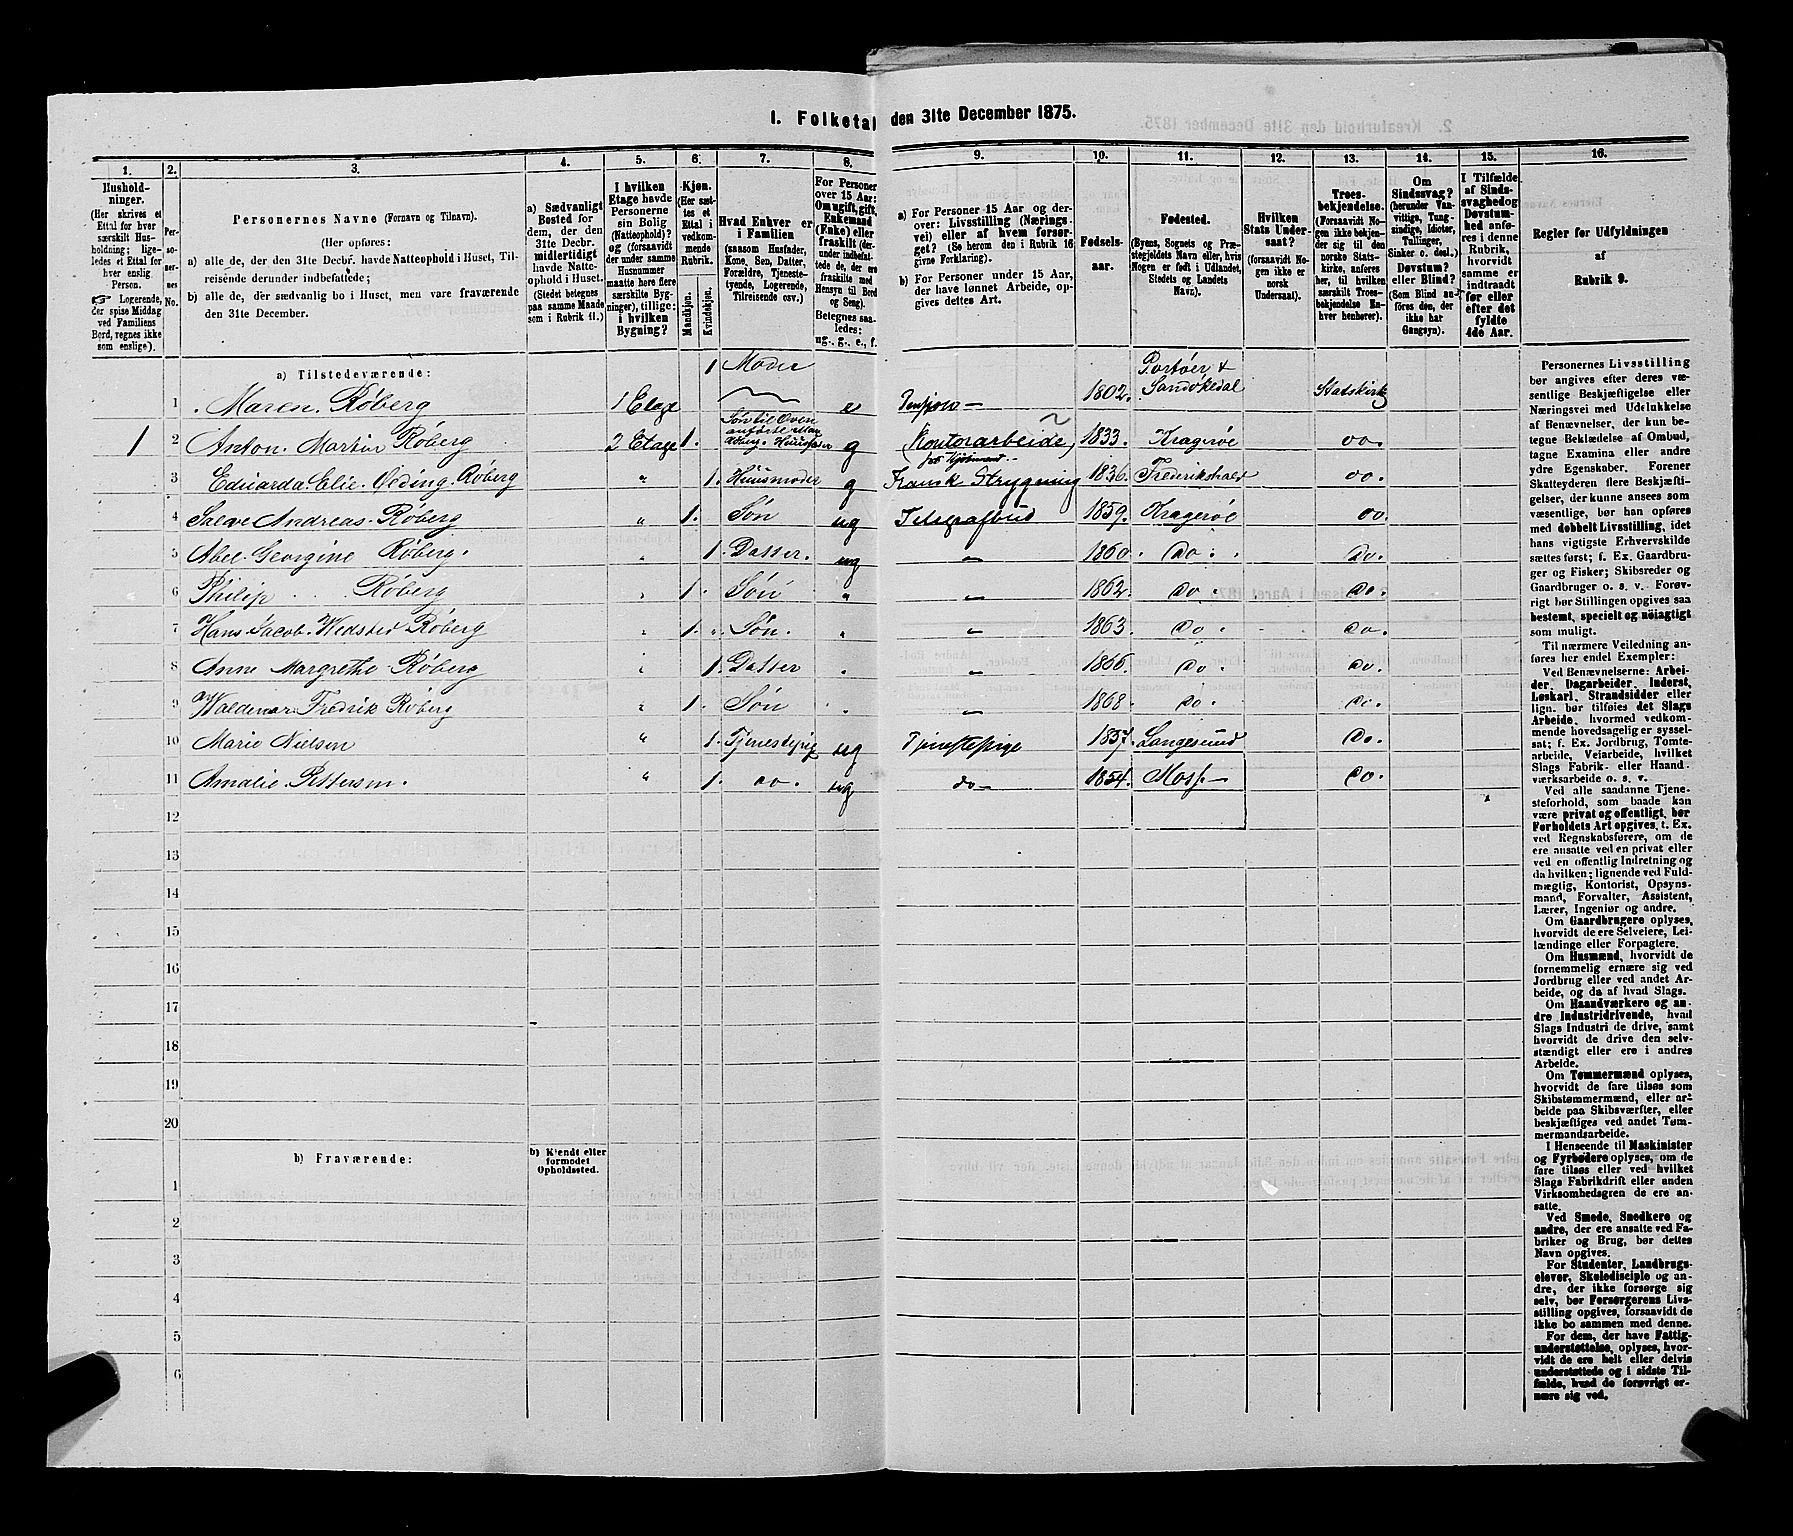 1. Folketal den 31te December 1875.
1. 2. 3. 4. 5. 6. 7. 8. 9. 10. 11. 12. 13. 14. 15. 16.
Hushold-
ninger.
(Her skrives et
Ettal for hver
særskilt Hus-
holdning; lige-
ledes et Ettal for
hver enslig
Person.
☞ Logerende,
der spise Middag
ved Familiens
Bord, regnes ikke
som enslige).
Per-
so-
ner-
nes
No.
Personernes Navne (Fornavn og Tilnavn).
(Her opføres:
a) alle de, der den 31te Decbr. havde Natteophold i Huset, Til-
reisende derunder indbefattede;
b) alle de, der sædvanlig bo i Huset, men vare fraværende
den 31te December.
a) Sædvanligt
Bosted for
dem, der den
31te Decbr.
midlertidigt
havde Natte-
ophold i Huset.
(Stedet betegnes
paa samme Maade
som i Rubrik 11.)
I hvilken
Etage havde
Personerne
sin Bolig
(Natteophold)?
og (forsaavidt
der under samme
Husnummer
maatte høre flere
særskilte Byg-
ninger), tillige:
i hvilken
Bygning?
Kjøn.
(Her sæt-
tes et
Ettal i
vedkom-
mende
Rubrik.
Mandkjøn.
Kvindekjøn.
Hvad Enhver er
i Familien
(saasom Husfader,
Kone, Søn, Datter,
Forældre, Tjeneste-
tyende, Logerende,
Tilreisende osv.)
For Personer
over 15 Aar:
Om ugift, gift,
Enkemand
(Enke) eller
fraskilt (der-
under indbefat-
tede de, der ere
fraskilte med
Hensyn til Bord
og Seng).
Betegnes saa-
ledes:
ug., g., e., f.
a) For Personer 15 Aar og der-
over: Livsstilling (Nærings-
vei) eller af hvem forsør-
get? (Se herom den i Rubrik 16
givne Forklaring).
b) For Personer under 15 Aar,
der have lønnet Arbeide, op-
gives dettes Art.
Fødsels-
aar.
Fødested.
(Byens, Sognets og Præ-
stegjeldets Navn eller, hvis
Nogen er født i Udlandet,
Stedets og Landets
Navn).
Hvilken
Stats Under-
saat?
(forsaavidt No-
gen ikke er
norsk
Undersaat).
Troes-
bekjendelse.
(Forsaavidt No-
gen ikke bekjen-
der sig til den
norske Stats-
kirke, anføres
her, til hvilken
særskilt Troes-
bekjendelse En-
hver henhører).
Om
Sindssvag?
(herunder Van-
vittige, Tung-
sindige, Idioter,
Tullinger,
Sinker o. desl.)
Døvstum?
eller Blind?
(Som Blind an-
føres den, der
ikke har
Gangsyn).
I Tilfælde
af Sinds-
svaghed og
Døvstum-
hed anfø-
res i denne
Rubrik,
hvorvidt
samme er
indtraadt
før eller
efter det
fyldte
4de Aar.
Regler for Udfyldningen
af
Rubrik 9.
a) Tilstedeværende:
1 Maren Røberg 1 Etage 1 Moder e 1802. Sandøkedal Statskirk
1 2 Anton Martin Røberg 2 Etage 1. Søn til Oven anførte Husfader g Kontorarbeide 1833. Kragerøe do.
3 Eduarda Elie Øeding Røberg " 1. Huusmoder g Fransk Strygning 1836. Frederikshald do.
4 Salve Andreas Røberg " 1. Søn ug Telegrafbud 1859. Kragerøe do
5 Abel Georgine Røberg. " 1. Datter. ug – 1860. do. do.
6 Philip Røberg " 1. Søn " – 1862. do. do.
7 Hans Jacob Wedsted Røberg " 1. Søn. " – 1863. do. do.
8 Anne Margrethe Røberg " 1. Datter " – 1866. do. do.
9 Waldemar Fredrik Røberg " 1. Søn " – 1868. do. do.
10 Marie Nielsen " 1. Tjenestepig ug Tjenestepige 1857. Langesund do.
11 Amalie Pettersen. " 1. do. ug do – 1854. Moss – do.
12
13
14
15
16
17
18
19
20
b) Fraværende:
b) Kjendt eller
formodet
Opholdssted.
1
2
3
4
5
6
Personernes Livsstilling
bør angives efter deres væ-
sentlige Beskjæftigelse eller
Næringsvei med Udelukkelse
af Benævnelser, der kun be-
tegne Beklædelse af Ombud,
tagne Examina eller andre
ydre Egenskaber. Forener
Skatteyderen flere Beskjæfti-
gelser, der kunne ansees som
væsentlige, bør han opføres
med dobbelt Livsstilling, idet
hans vigtigste Erhvervskilde
sættes først; f. Ex. Gaardbru-
ger og Fisker; Skibsreder og
Gaardbruger o. s. v. Forøv-
rigt bør Stillingen opgives saa
bestemt, specielt og nøiagtigt
som muligt.
Til nærmere Veiledning an-
føres her endel Exempler:
Ved Benævnelserne: Arbei-
der, Dagarbeider, Inderst,
Løskarl, Strandsidder eller
lign. bør tilføies det Slags
Arbeide, hvormed vedkom-
mende hovedsagelig er syssel-
sat; f. Ex. Jordbrug, Tomte-
arbeide, Veiarbeide, hvilket
Slags Fabrik- eller Haand-
værksarbeide o. s. v.
Ved alle saadanne Tjene-
steforhold, som baade kan
være privat og offentligt, bør
Forholdets Art opgives, t. Ex.
ved Regnskabsførere, om de
ere ansatte ved en privat eller
ved en offentlig Indretning og
da hvilken; lignende ved Fuld-
mægtig, Kontorist, Opsyns-
mand, Forvalter, Assistent,
Lærer, Ingeniør og andre.
Om Gaardbrugere oplyses,
hvorvidt de ere Selveiere, Lei-
lændinge eller Forpagtere.
Om Husmænd, hvorvidt de
fornemmelig ernære sig ved
Jordbrug eller ved andet Ar-
beide, og da af hvad Slags.
Om Haandværkere og an-
dre Industridrivende, hvad
Slags Industri de drive, samt
hvorvidt de drive den selv-
stændigt eller ere i andres
Arbeide.
Om Tømmermænd oplyses,
hvorvidt de fare tilsøs som
Skibstømmermænd, eller ar-
beide paa Skibsværfter, eller
beskjæftiges ved andet Tøm-
mermandsarbeide.
I Henseende til Maskinister
og Fyrbødere oplyses, om de
fare tilsøs eller ved hvilket
Slags Fabrikdrift eller anden
Virksomhedsgren de ere an-
satte.
Ved Smede, Snedkere og
andre, der ere ansatte ved Fa-
briker og Brug, bør dettes
Navn opgives.
For Studenter, Landbrugs-
elever, Skoledisciple og an-
dre, der ikke forsørge sig
selv, bør Forsørgerens Livs-
stilling opgives, forsaavidt de
ikke bo sammen med denne.
For dem, der have Fattig-
understøttelse, oplyses, hvor-
vidt de ere helt eller delvis
understøttede og i sidste Til-
fælde, hvad de forøvrigt er-
nære sig ved.